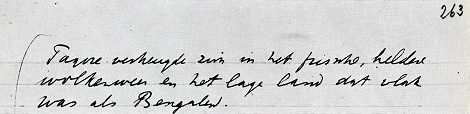 263
Tagore verheugde zich in het frissche, heldere
wolkenweer en het lage land dat vlak
was als Bengalen.